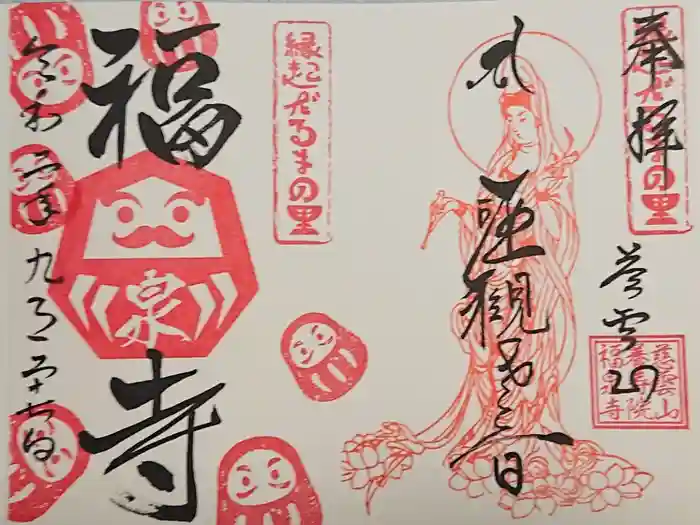 奉拝
縁起だるまの里
慈雲山
慈雲山
院
福泉寺
聖観世音
縁起だるまの里
福泉寺
令和二年九月二十七日